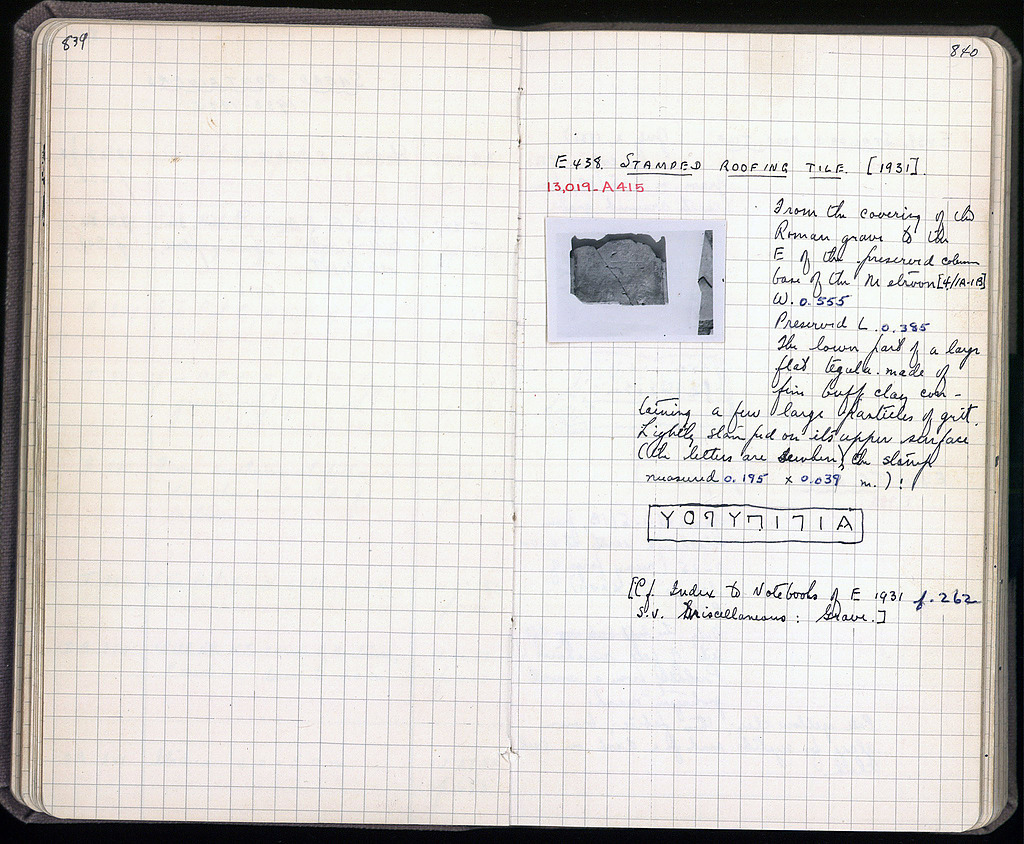 839
840
E 438. STAMPED ROOFING TILE. [1931].
13,019-A415
From the covering of the
Roman grave to the
E of the preserved column
base of the Metroon [4/1A-1B]
W. 0.555
Preserved L. 0.385
The lower part of a large
flat tegula made of
fine buff clay con-
taining a few large particles of grit.
Lightly stamped on its upper surface
(the letters are the stamp
measured 0.195 x 0.039 m.):
[Cf. Index to Notebooks of E 1931 p. 262
s.v. Miscellaneous: Grave.]